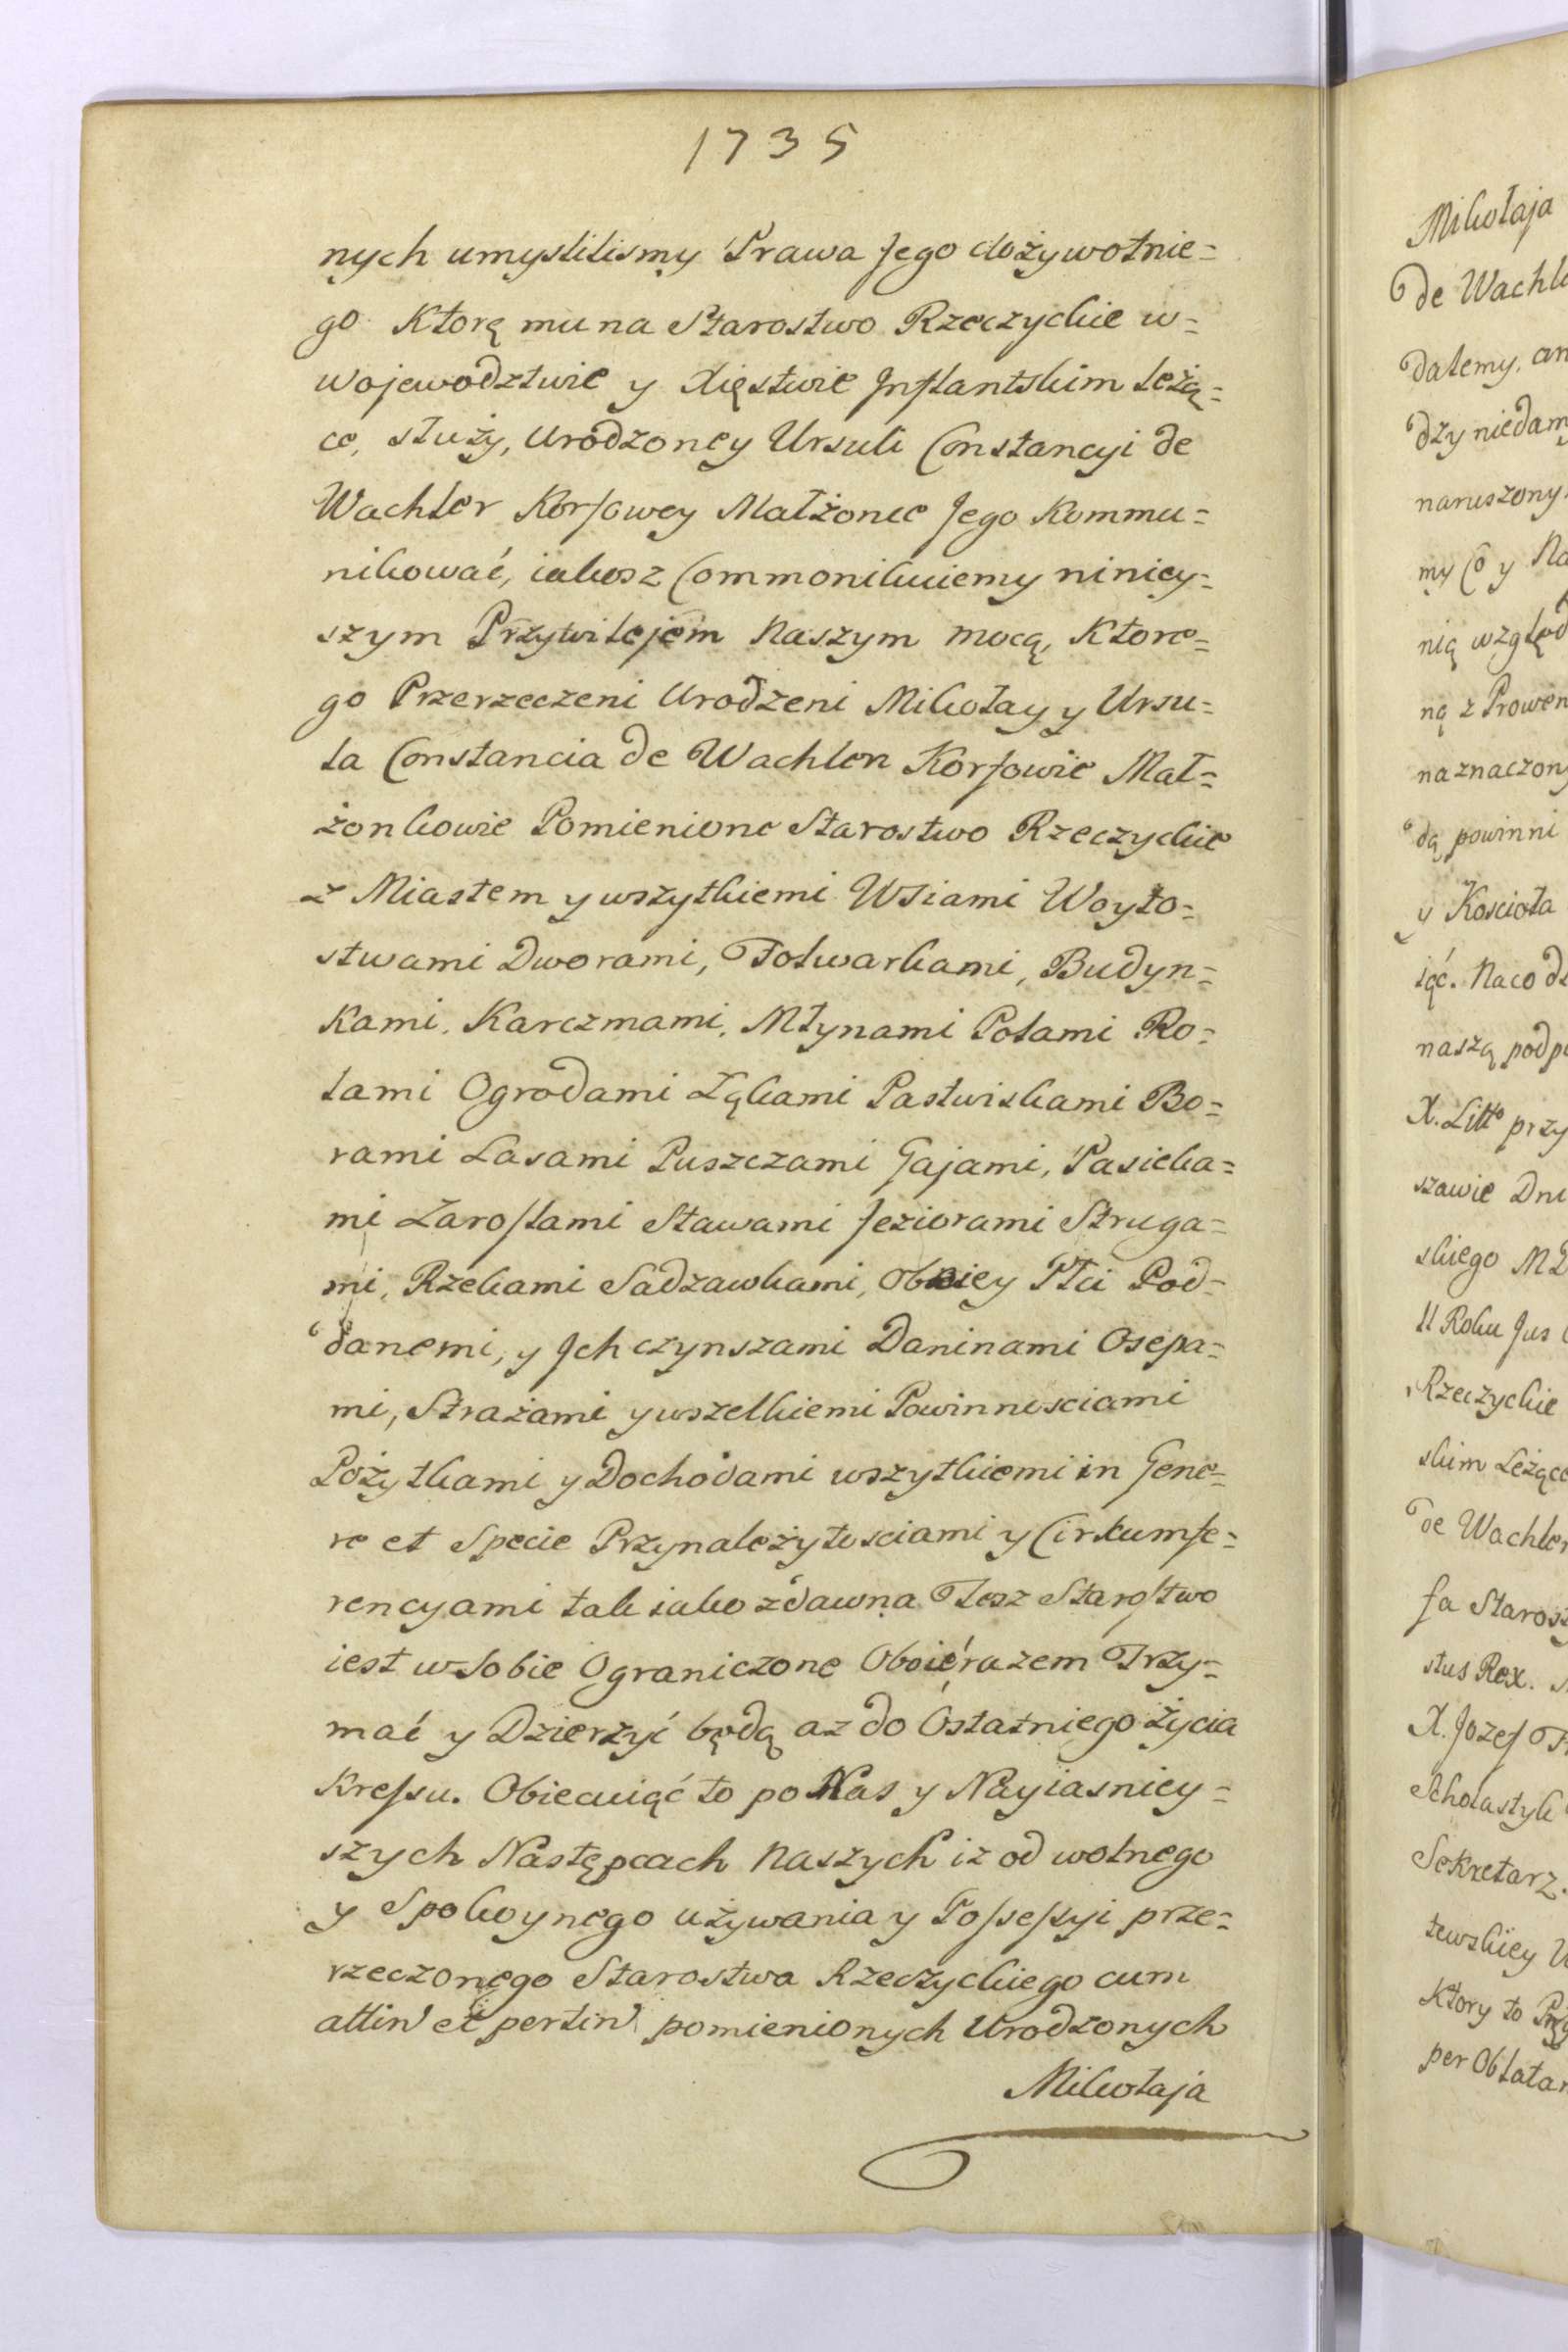 1735
nych umyslilismy Prawa Jego dożywotnie=
go Ktorę mu na Starostwo Rzeczyckie w=
wojewodztwie y Xięstwie Inflantskim leżą=
ce, służy, Urodzoney Ursuli Constancyi de
Wachler Korfowey Małżonce Jego Kommu=
nikować, iakosz Commonikuiemy niniey=
szym Przywilejem Naszym mocą, Ktore=
go Przerzeczeni Urodzeni Mikołay y Ursu=
la Constancia de Wachlen Korfowie Mał=
żonkowie Pomienione Starostwo Rzeczyckie
z Miastem y wszytkiemi Wsiami Woyto=
stwami Dworami, Folwarkami, Budyn=
kami, Karczmami, Młynami Polami Ro=
lami Ogrodami Łąkami Pastwiskami Bo=
rami Lasami Puszczami Gajami, Pasieka=
mi Zaroslami Stawami Jeziorami Struga=
mi, Rzekami Sadzawkami, oboiey Płci Pod=
danemi, y Ich czynszami Daninami Osepa=
mi, Strażami y wszelkiemi Powinnosciami
Pożytkami y Dochodami wszytkiemi in Gene=
re et Specie Przynależytosciami y Cirkumfe=
rencyami tak iako zdawna Tesz Starostwo
iest w Sobie Ograniczone Oboie razem Trzy=
mać y Dzierzyć będą az do Ostatniego Życia
Kressu. Obiecuiąć to po Nas y Nayiasniey=
szych Następcach Naszych iz od wolnego
y Spokoynego używania y Possessyi prze=
rzeczonego Starostwa Rzeczyckiego cum
attin et pertin pomienionych Urodzonych
Mikołaja
Mikołaja
de Wachle
dalemy, an
dzy niedamy
naruszony
my Co y Na
nią względ
ną z Prowen
naznaczony
dą powinni
y Koscioła
iąć. Naco dl
naszą podp
X. Litto przy
szawie Dni
skiego M
II Roku Jus
Rzeczyckie
skim Leżące
de Wachler
fa Starost
stus Rex.
X. Jozef
Scholastyk
Sekretarz
tewskiey
Ktory to Prz
per Oblatam